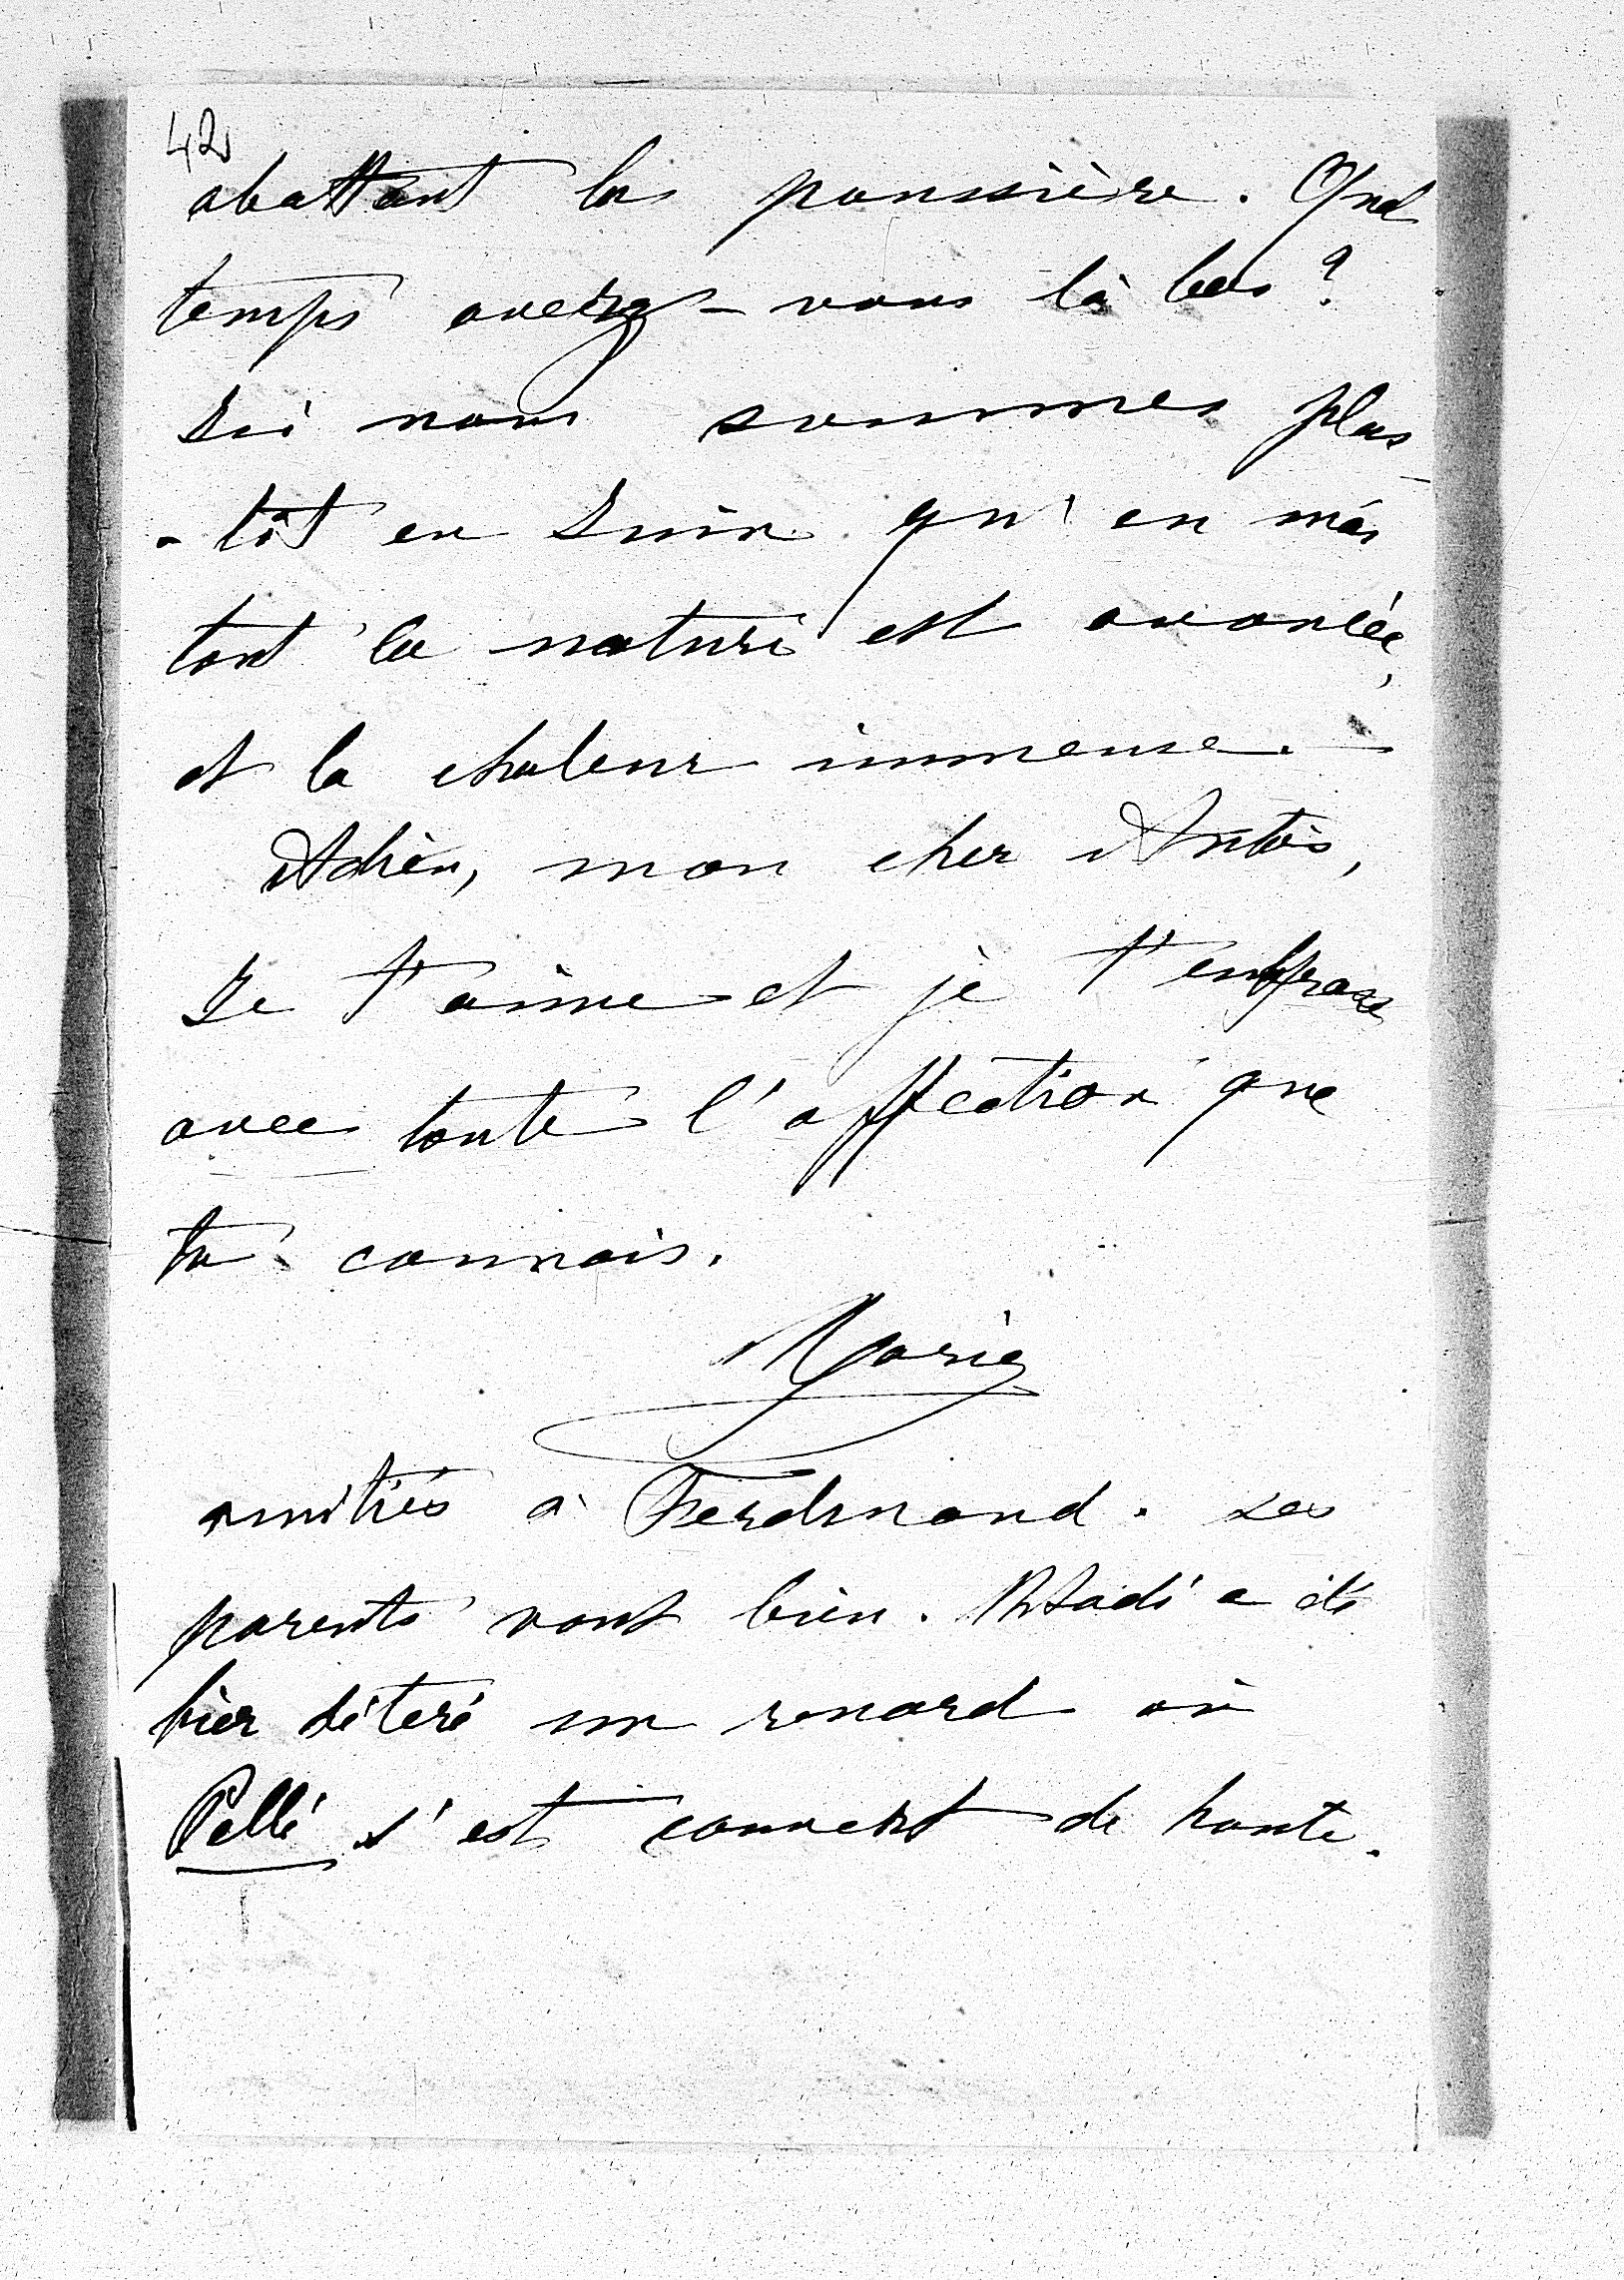 42
abattant la poussière. Quel
temps avez-vous là bas ?
Ici nous sommes plus
-tôt en Juin qu'en mai
tout la nature est avancée,
et la chaleur immense. —
Adieu, mon cher Antois,
Je t'aime et je t'embrasse
avec toute l'affection que
tu connais.
Marie
amitiés à Ferdinand. Les
parents vont bien. a été
hier déteré un renard où
Pellé s'est couvert de honte.